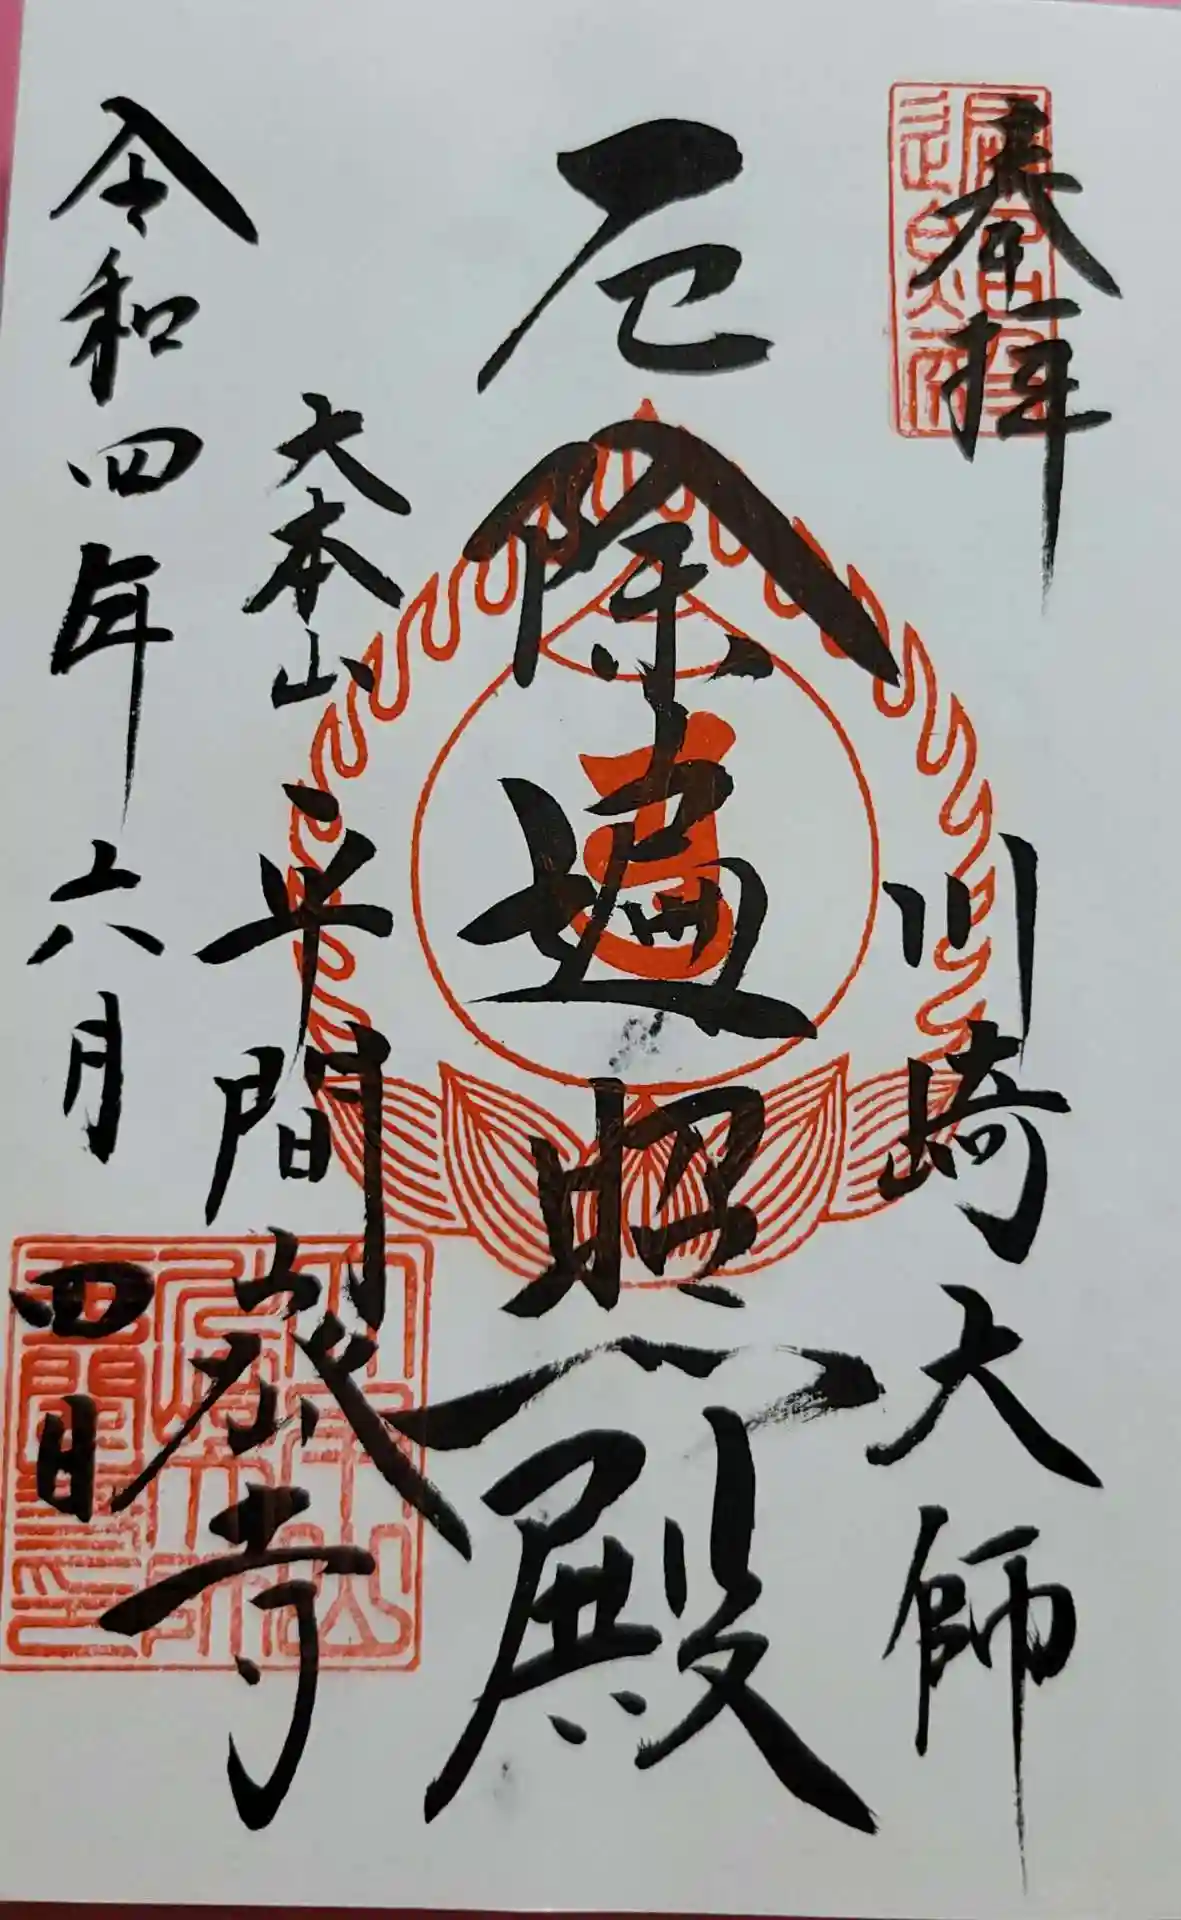 奉拝
川崎大師
厄除遍照殿
大本山平間寺
令和四年六月四日